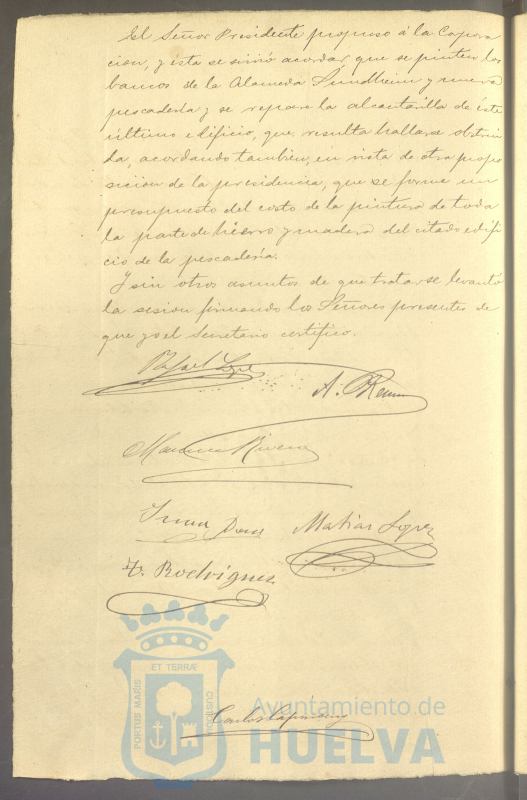 El Señor Presidente propuso á la Corpora
cion, y ésta se sirvió acordar que se pinten los
bancos de la Alameda Sundheim y nueva
pescadería y se repare la alcantarilla de éste
último edificio, que, resulta hallarse obstrui
da, acordando tambien, en vista de otra propo
sicion de la presidencia, que se forme un
presupuesto del costo de la pintura de toda
la parte de hierro y madera del citado edifi
cio de la pescadería.
Y sin otros asuntos de que tratar se levantó
la sesion firmando los Señores presentes de
que yo el Secretario certifico.
Rafael Lopez
A.
Rivera
Matias Lopez
Rodriguez
PORTUS MARIS
ET TERRÆ
CUSTODIA
Ayuntamiento de
HUELVA
Carlos